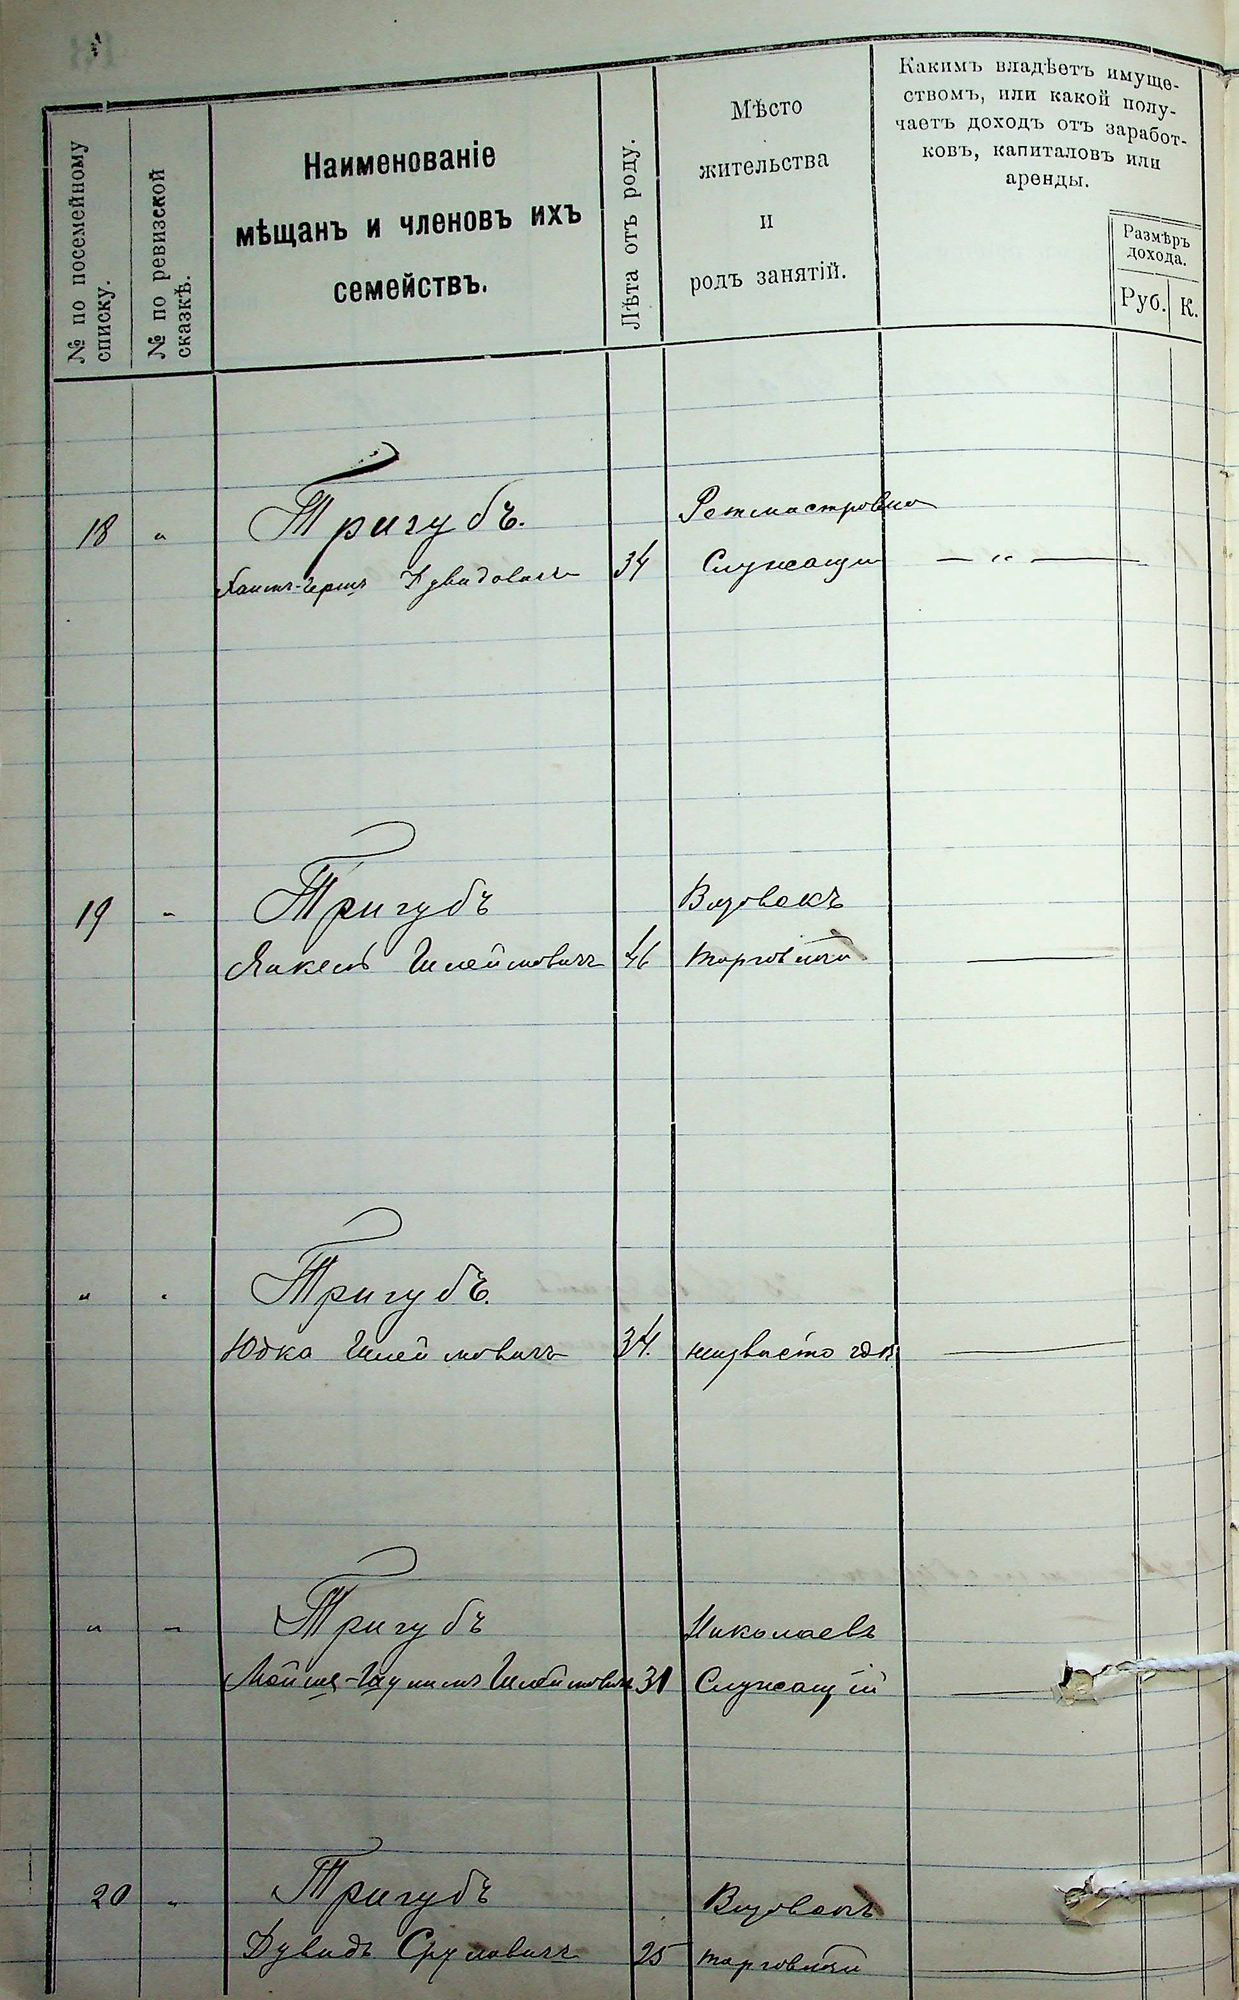 № по посемейному
списку.
№ по ревизской
сказкѣ.
Наименованіе
мѣщанъ и членовъ ихъ
семействъ.
Лѣта отъ роду.
Мѣсто
жительства
и
родъ занятій.
Какимъ владѣетъ имуще-
ствомъ, или какой полу-
чаетъ доходъ отъ заработ-
ковъ, капиталовъ или
аренды.
Размѣръ
дохода.
Руб. К.
18 " Тригубъ.
Хаимъ-Герш Дувидовичъ 34 Служащи — " —
19 - Тригубъ
Янкель Шлеймовичъ 46 торговля —
" - Тригубъ.
Юдко Шлеймовичъ 34. —
" - Тригубъ Николаевъ
Мойше- Шлеймович 31 Служащій —
20 " Тригубъ
Дувидъ Сруловичъ 25 торговля —